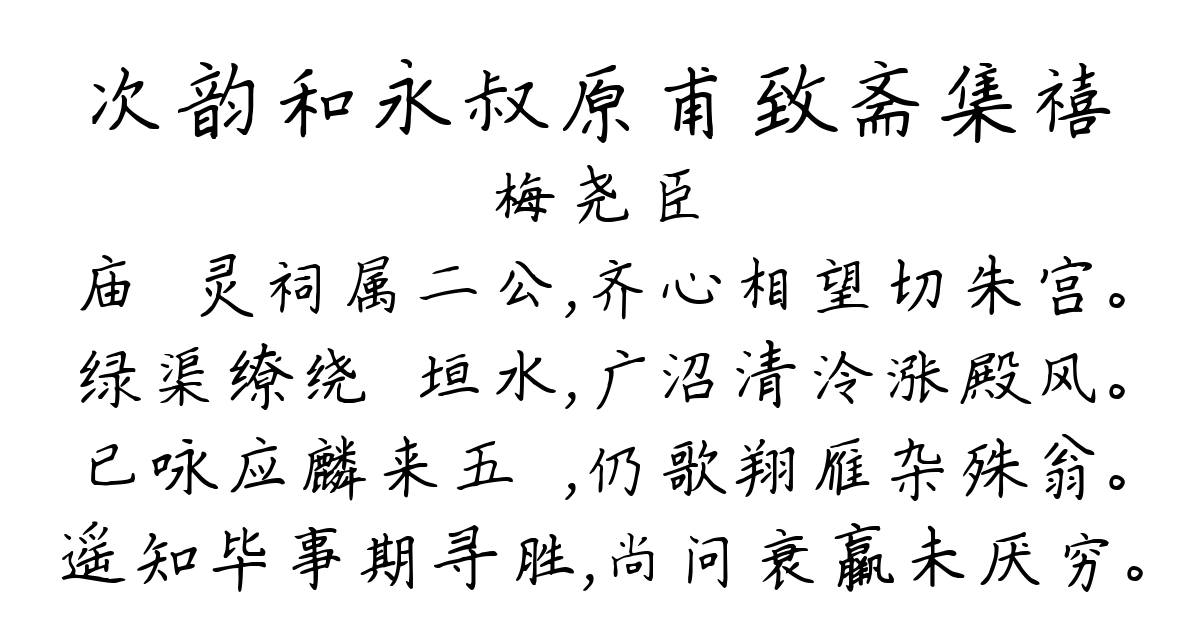 次韵和永叔原甫致斋集禧
梅尧臣
庙 灵祠属二公,齐心相望切朱宫。
绿渠缭绕 垣水,广沼清泠涨殿风。
已咏应麟来五 ,仍歌翔雁杂殊翁。
遥知毕事期寻胜,尚问衰羸未厌穷。